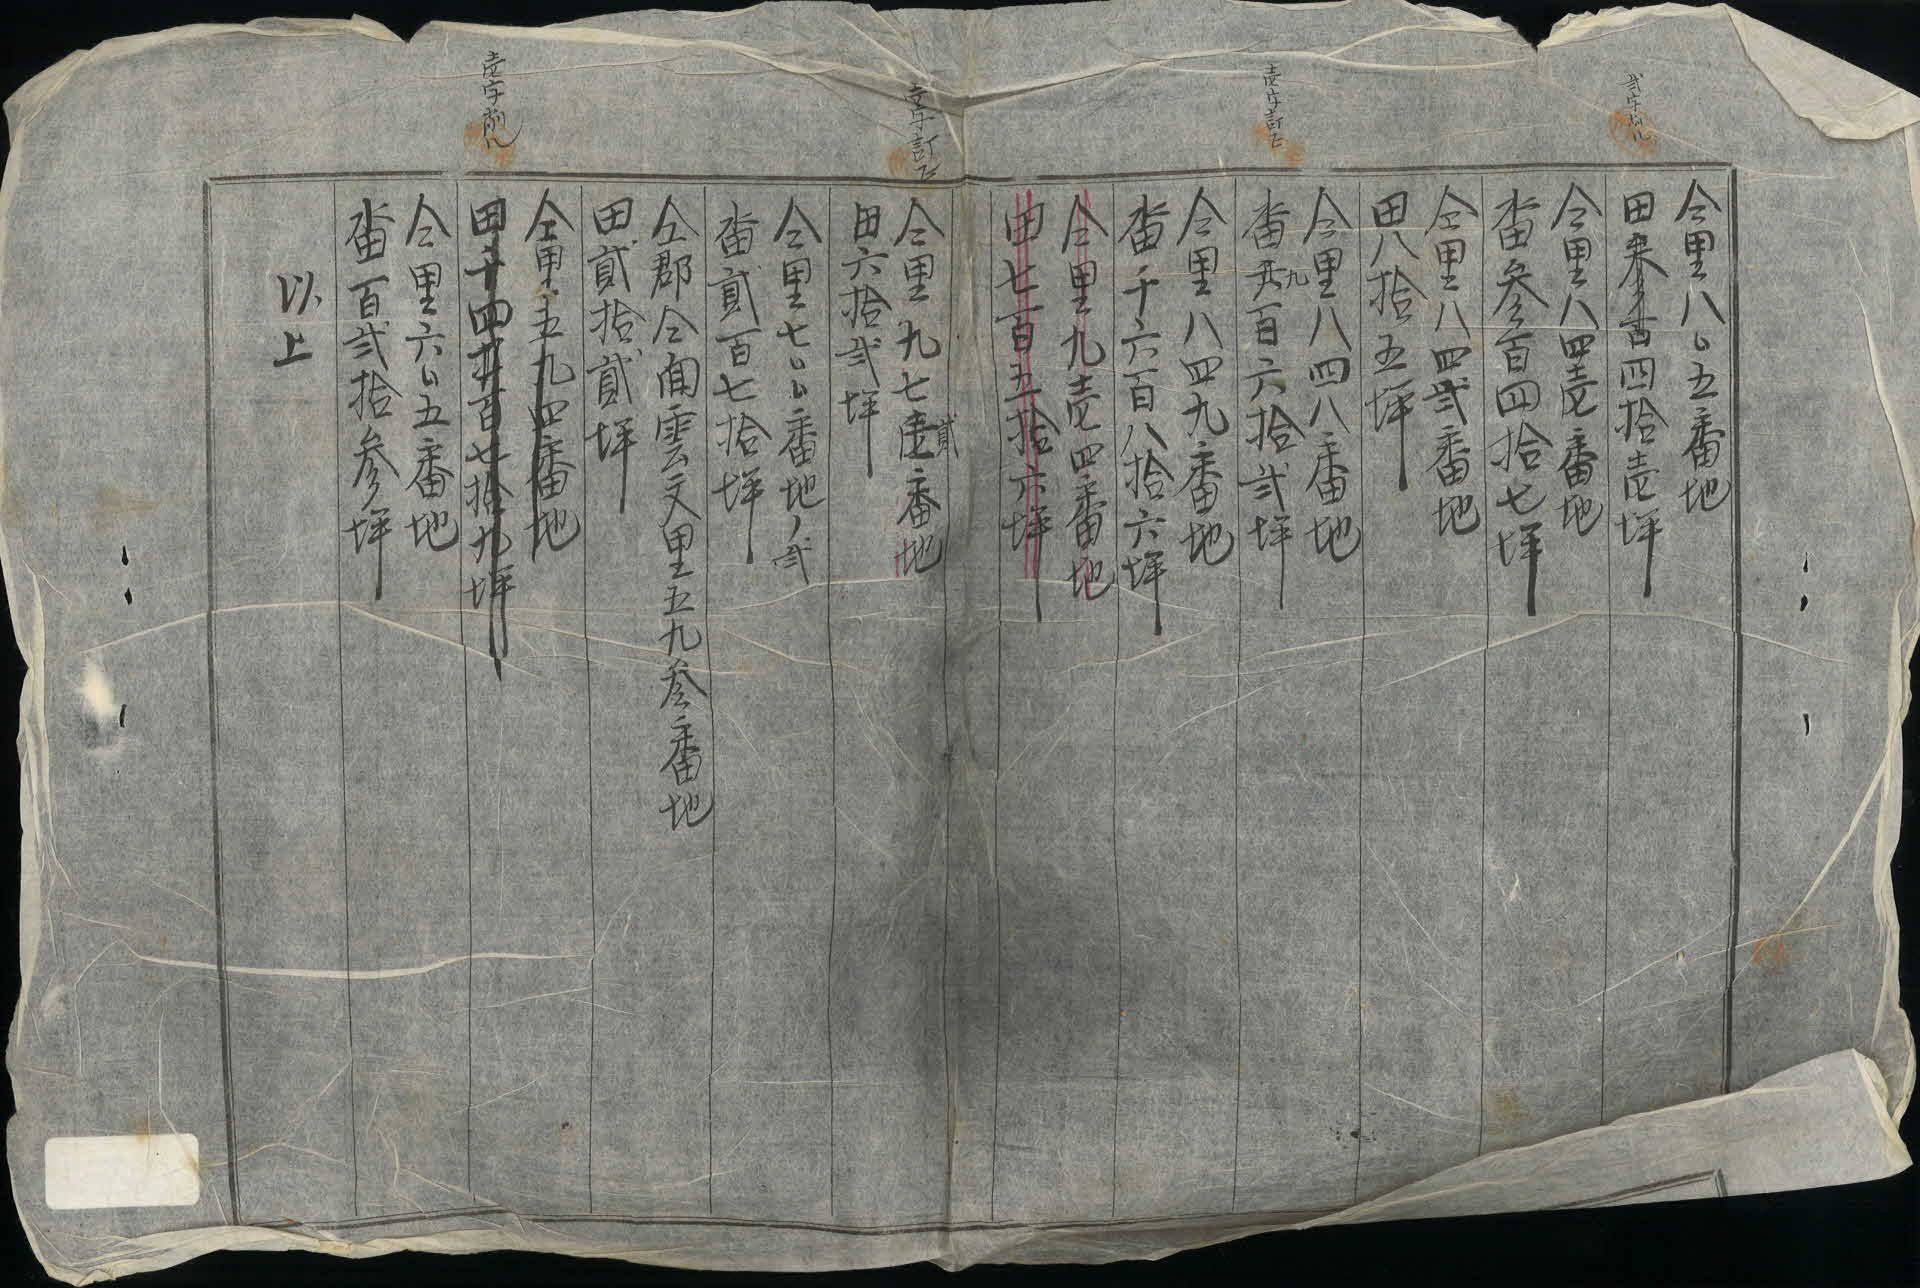 弐字削ル
仝里八〇五番地
田百四拾壱坪
仝里八四壱番地
畓参百四拾七坪
仝里八四弐番地
田八拾五坪
壱字訂正
仝里八四八番地
畓九百六拾弐坪
仝里八四九番地
畓千六百八拾六坪
仝里九壱四番地
田七百五拾六坪
壱字訂正
仝里九七貳番地
田六拾弐坪
仝里七〇〇番地ノ弐
畓貳百七拾坪
仝郡仝面雲文里五九参番地
田貳拾貳坪
壱字削ル
仝里五九四番地
田千四百七拾九坪
仝里六〇五番地
畓百弐拾参坪
以上